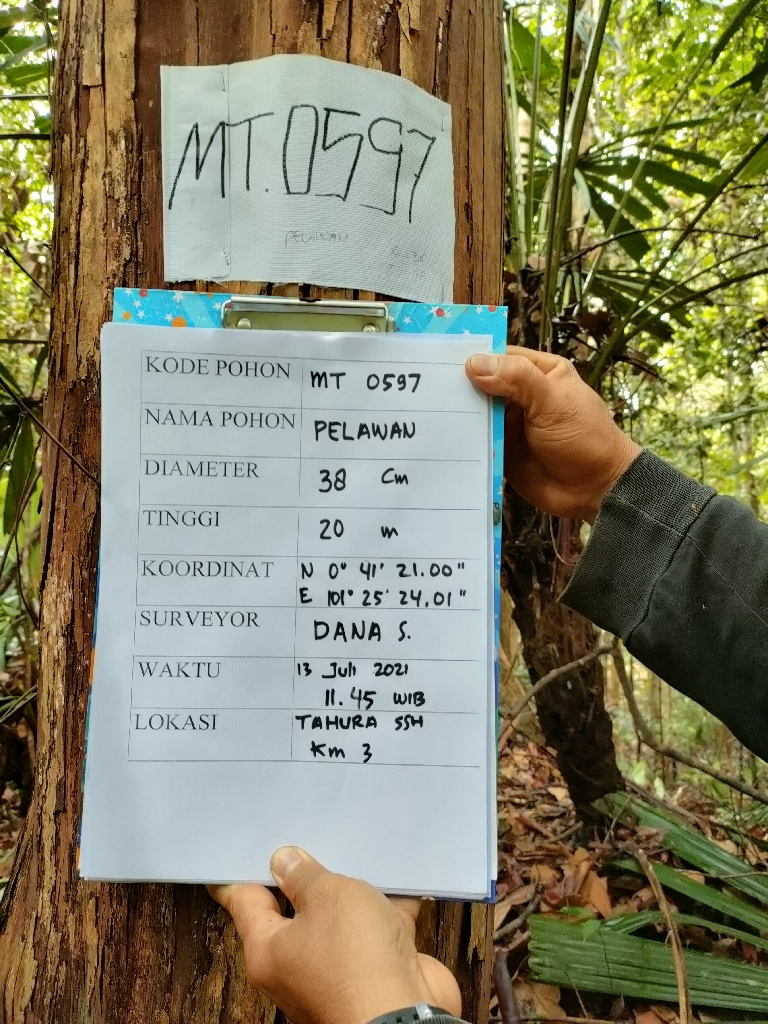 MT.0597
PELAWAN
KODE POHON MT 0597
NAMA POHON PELAWAN
DIAMETER 38 Cm
TINGGI 20 m
KOORDINAT N 0° 41' 21.00"
E 101° 25' 24.01"
SURVEYOR DANA S.
WAKTU 13 Juli 2021
11.45 WIB
LOKASI TAHURA SSH
Km 3